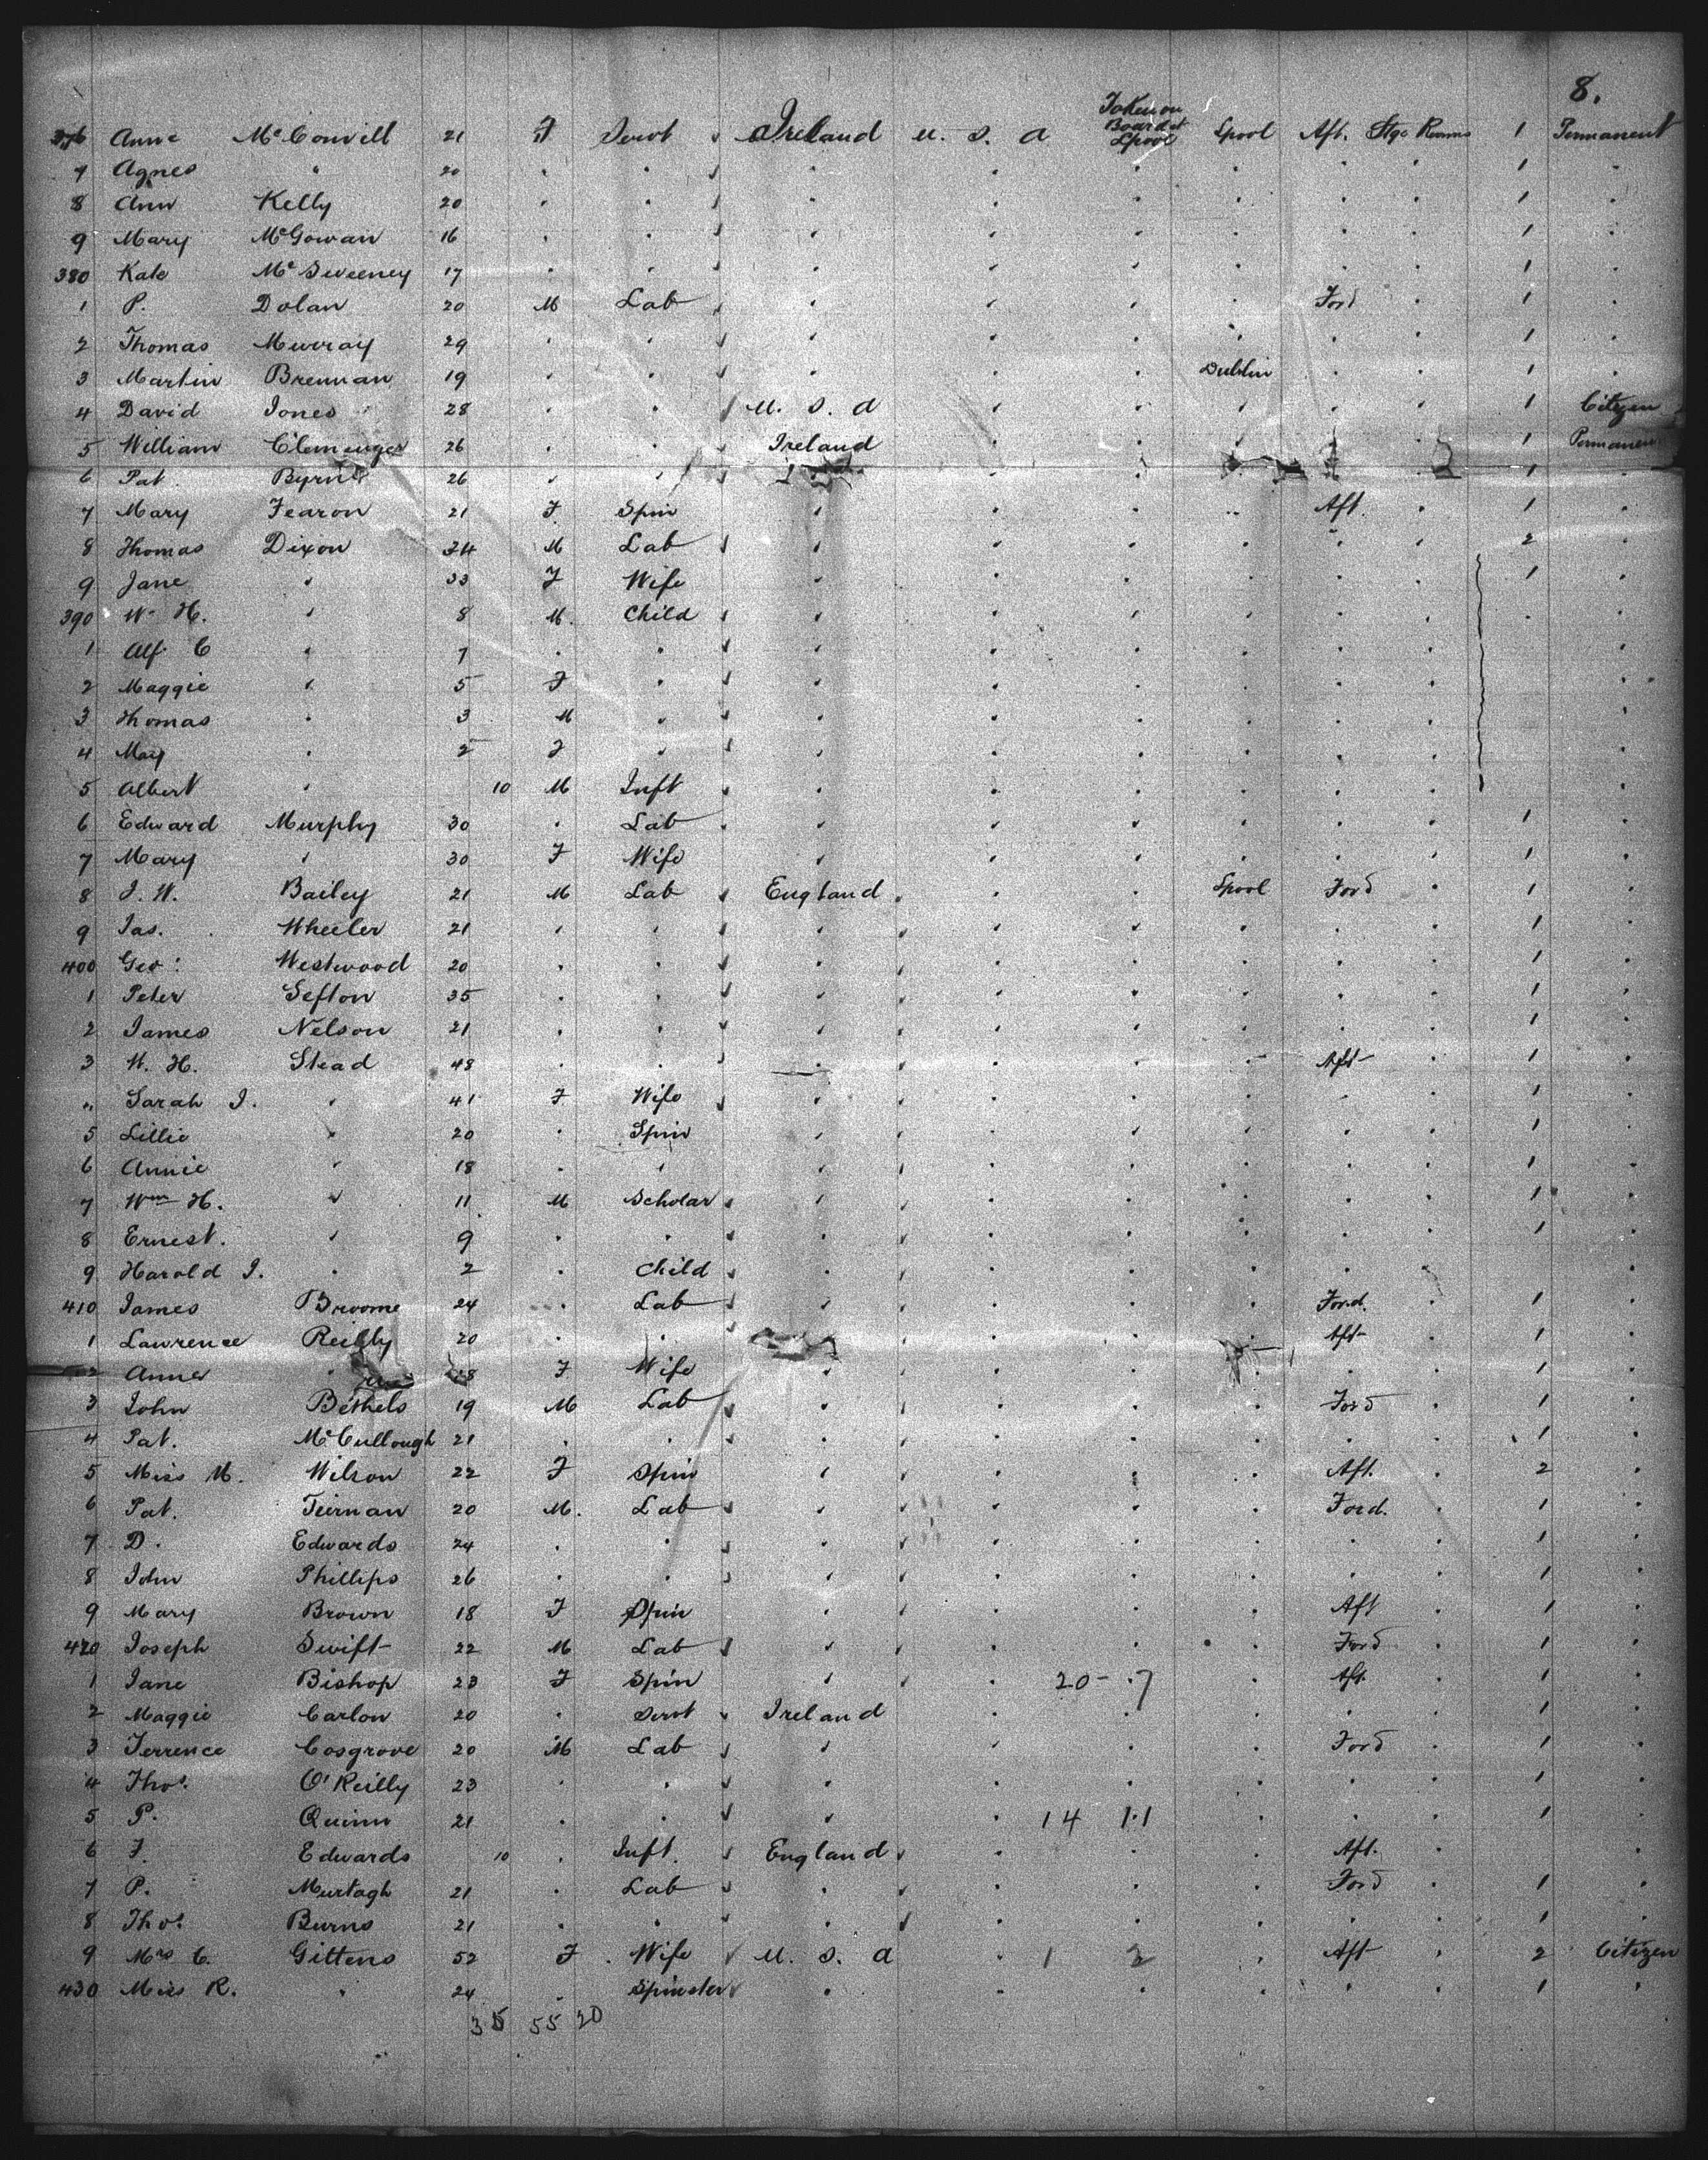 8.
376 Anne McConvill 21 F Servt Ireland U. S. A Taken on Board at Lpool Lpool Aft. Stge Rooms 1 Permanent
7 Agnes " 20 1
8 Ann Kelly 20 1
9 Mary McGowan 16 1
380 Kate McSweeney 17 1
1 P. Dolan 20 M Lab Ford 1
2 Thomas Murray 29 1
3 Martin Brennan 19 Dublin 1
4 David Jones 28 U. S. A 1 Citizen
5 William Clemenger 26 Ireland 1 Permanen
6 Pat. Byrne 26 1
7 Mary Fearon 21 F. Spin Aft. 1
8 Thomas Dixon 34 M Lab 2
9 Jane " 33 F Wife 1
390 W. H. " 8 M. Child
1 Alf. C " 7
2 Maggie " 5 F
3 Thomas " 3 M
4 May " 2 F
5 Albert " 10 M Inft
6 Edward Murphy 30 Lab 1
7 Mary " 30 F Wife 1
8 J. W. Bailey 21 M Lab England Lpool Ford 1
9 Jas. Wheeler 21 1
400 Geo: Westwood 20 1
1 Peter Sefton 35 1
2 James Nelson 21 1
3 W. H. Stead 48 Aft 1
" Sarah J. " 41 F Wife 1
5 Lillie " 20 Spin 1
6 Annie " 18 1
7 Wm H. " 11 M Scholar 1
8 Ernest. " 9 1
9 Harold J. " 2 Child
410 James Broome 24 Lab Ford. 1
1 Lawrence Reilly 20 Aft 1
2 Anne " F Wife 1
3 John Bethels 19 M Lab Ford 1
4 Pat. McCullough 21 1
5 Miss M. Wilson 22 F Spin Aft. 2
6 Pat. Teirnan 20 M. Lab Ford. 1
7 D. Edwards 24 1
8 John Phillips 26 1
9 Mary Brown 18 F Spin Aft 1
420 Joseph Swift 22 M Lab Ford 1
1 Jane Bishop 23 F Spin 20 - 7 Aft. 1
2 Maggie Carlon 20 Servt Ireland 1
3 Terrence Cosgrove 20 M Lab Ford 1
4 Thos. O'Reilly 23 1
5 P. Quinn 21 14 11 1
6 F. Edwards 10 Inft. England Aft.
7 P. Murtagh 21 Lab Ford 1
8 Thos. Burns 21 1
9 Mrs C. Gittens 52 F Wife U. S. A 1 2 Aft 2 Citizen
430 Miss R. " 24 Spinster 1
35 55 20